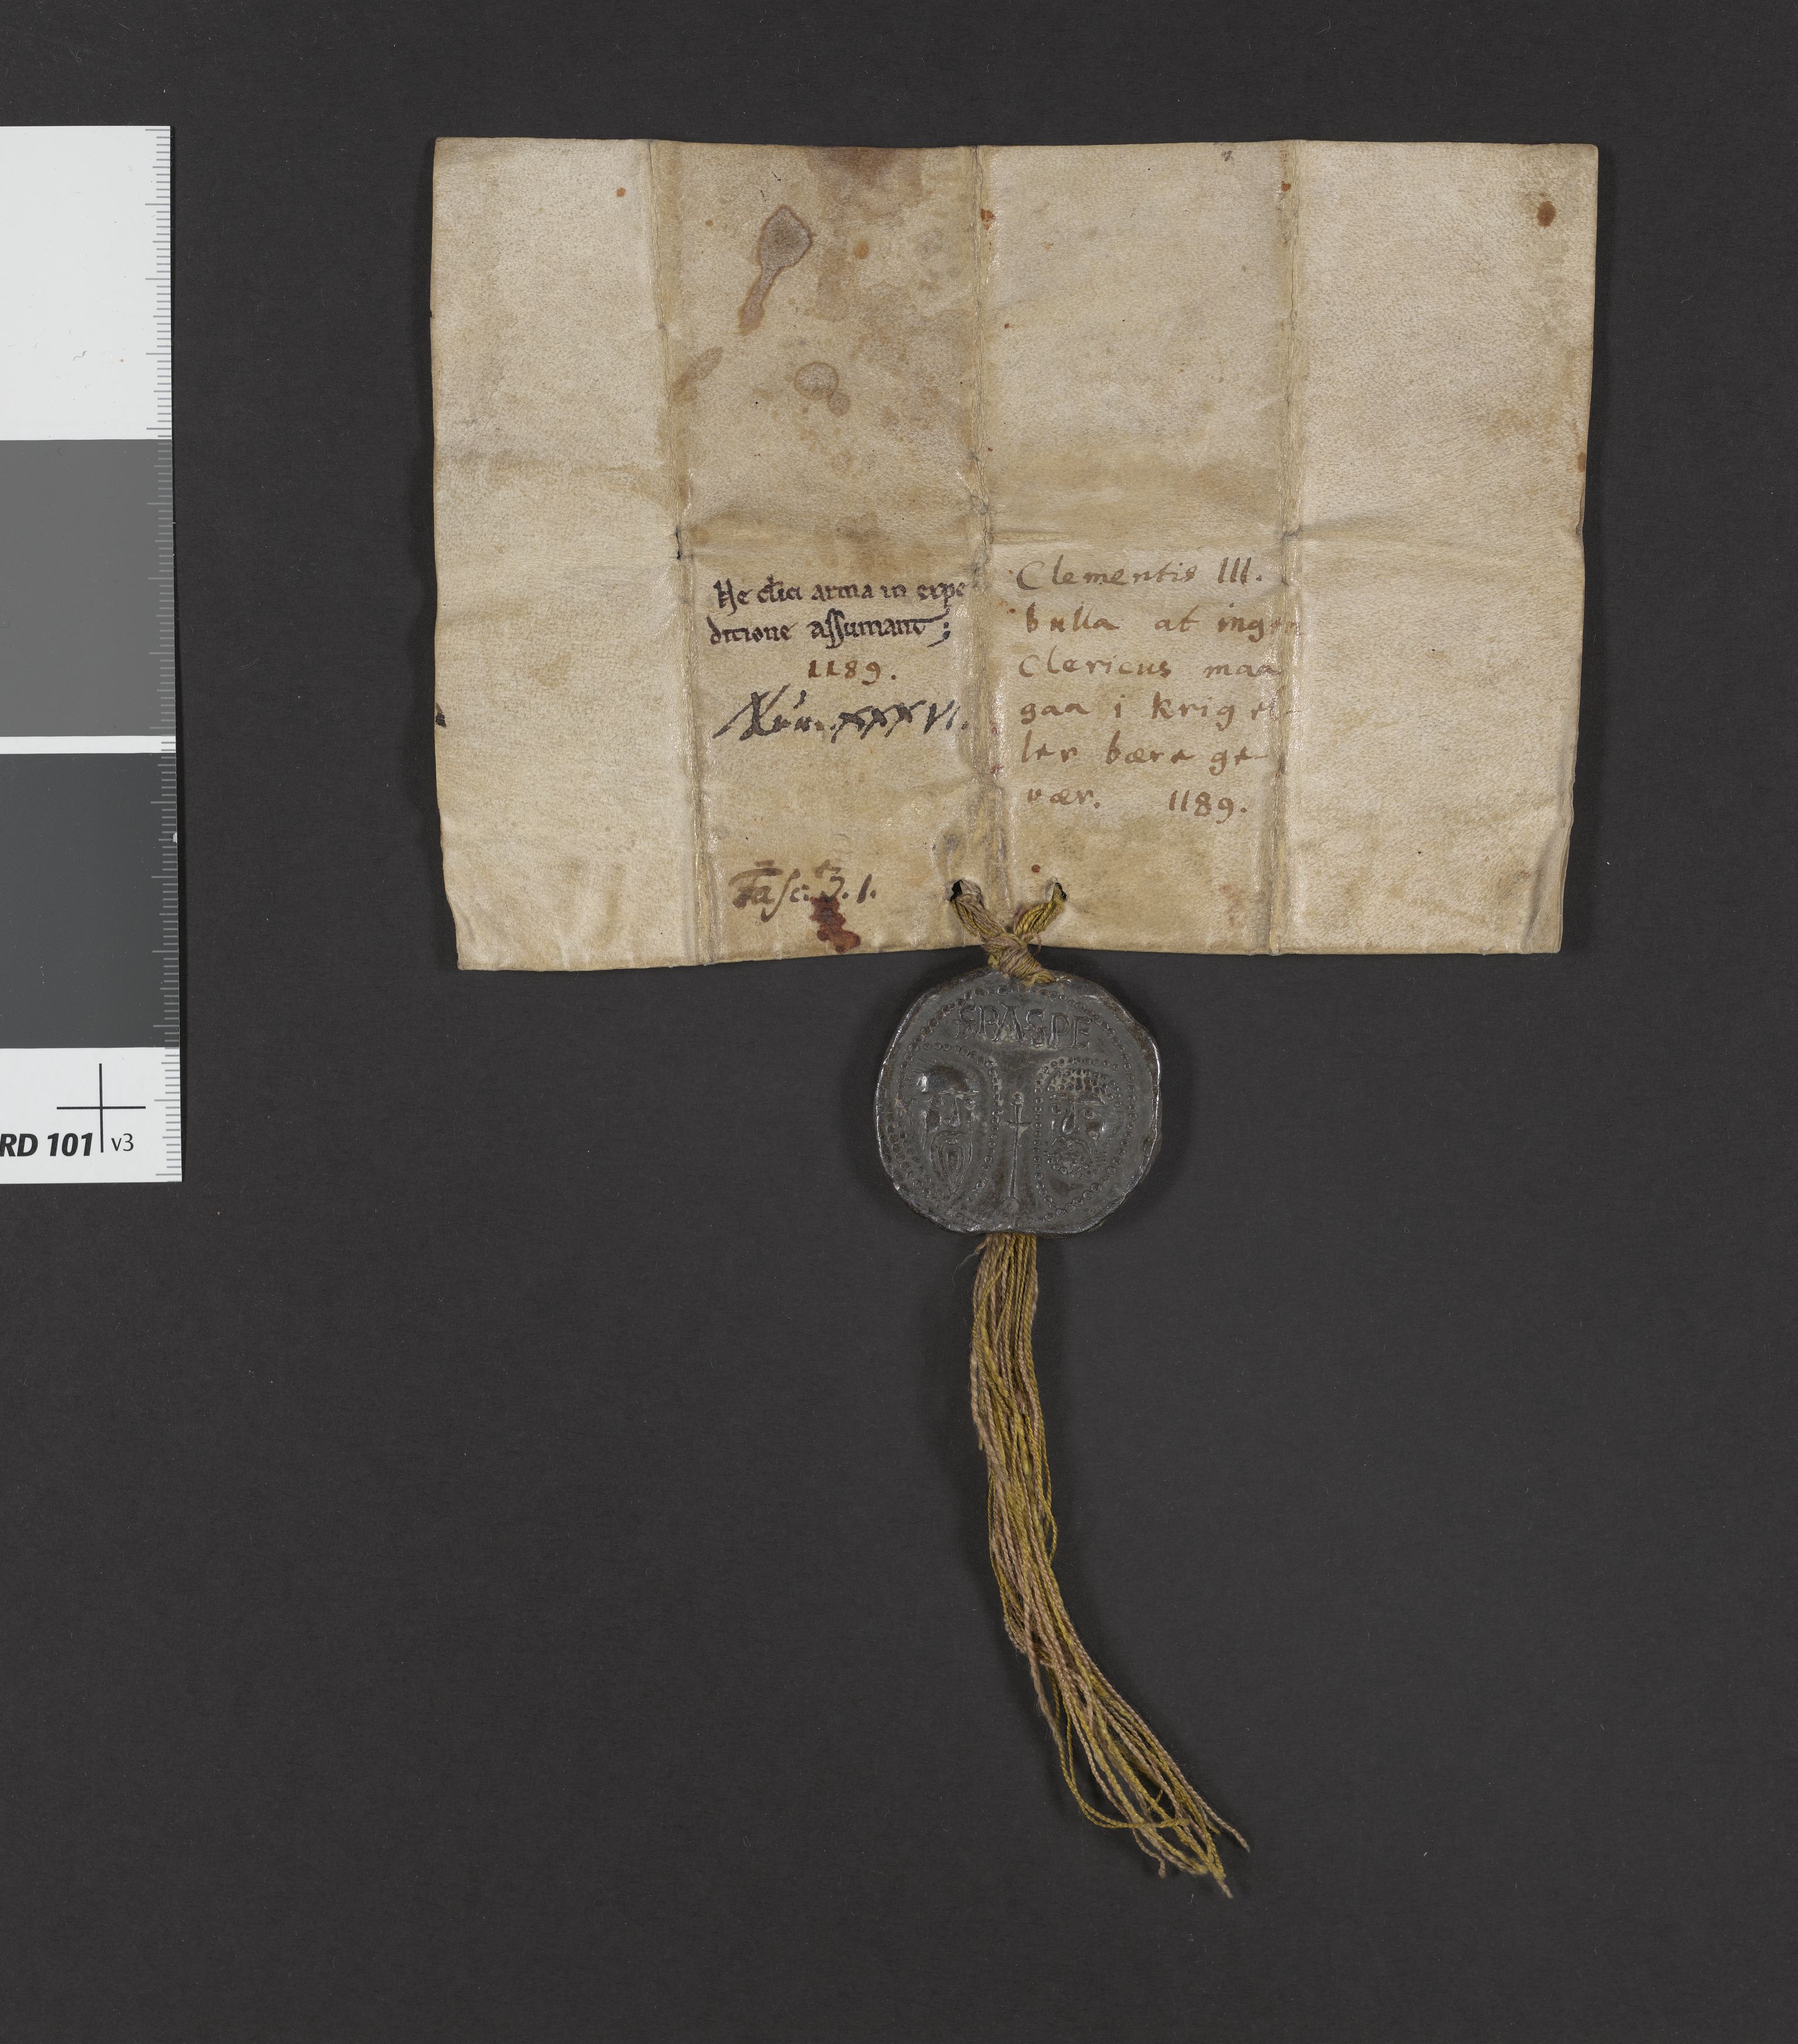 Ne clici arma in expe
ditione assumant;
1189.
XXXVI.
Clementis III.
bulla at ingen
Clericus maa
gaa i krig el
ler bære ge
vær. 1189.
Fasc. 3. 1.
SPASPE
RD 101 v3